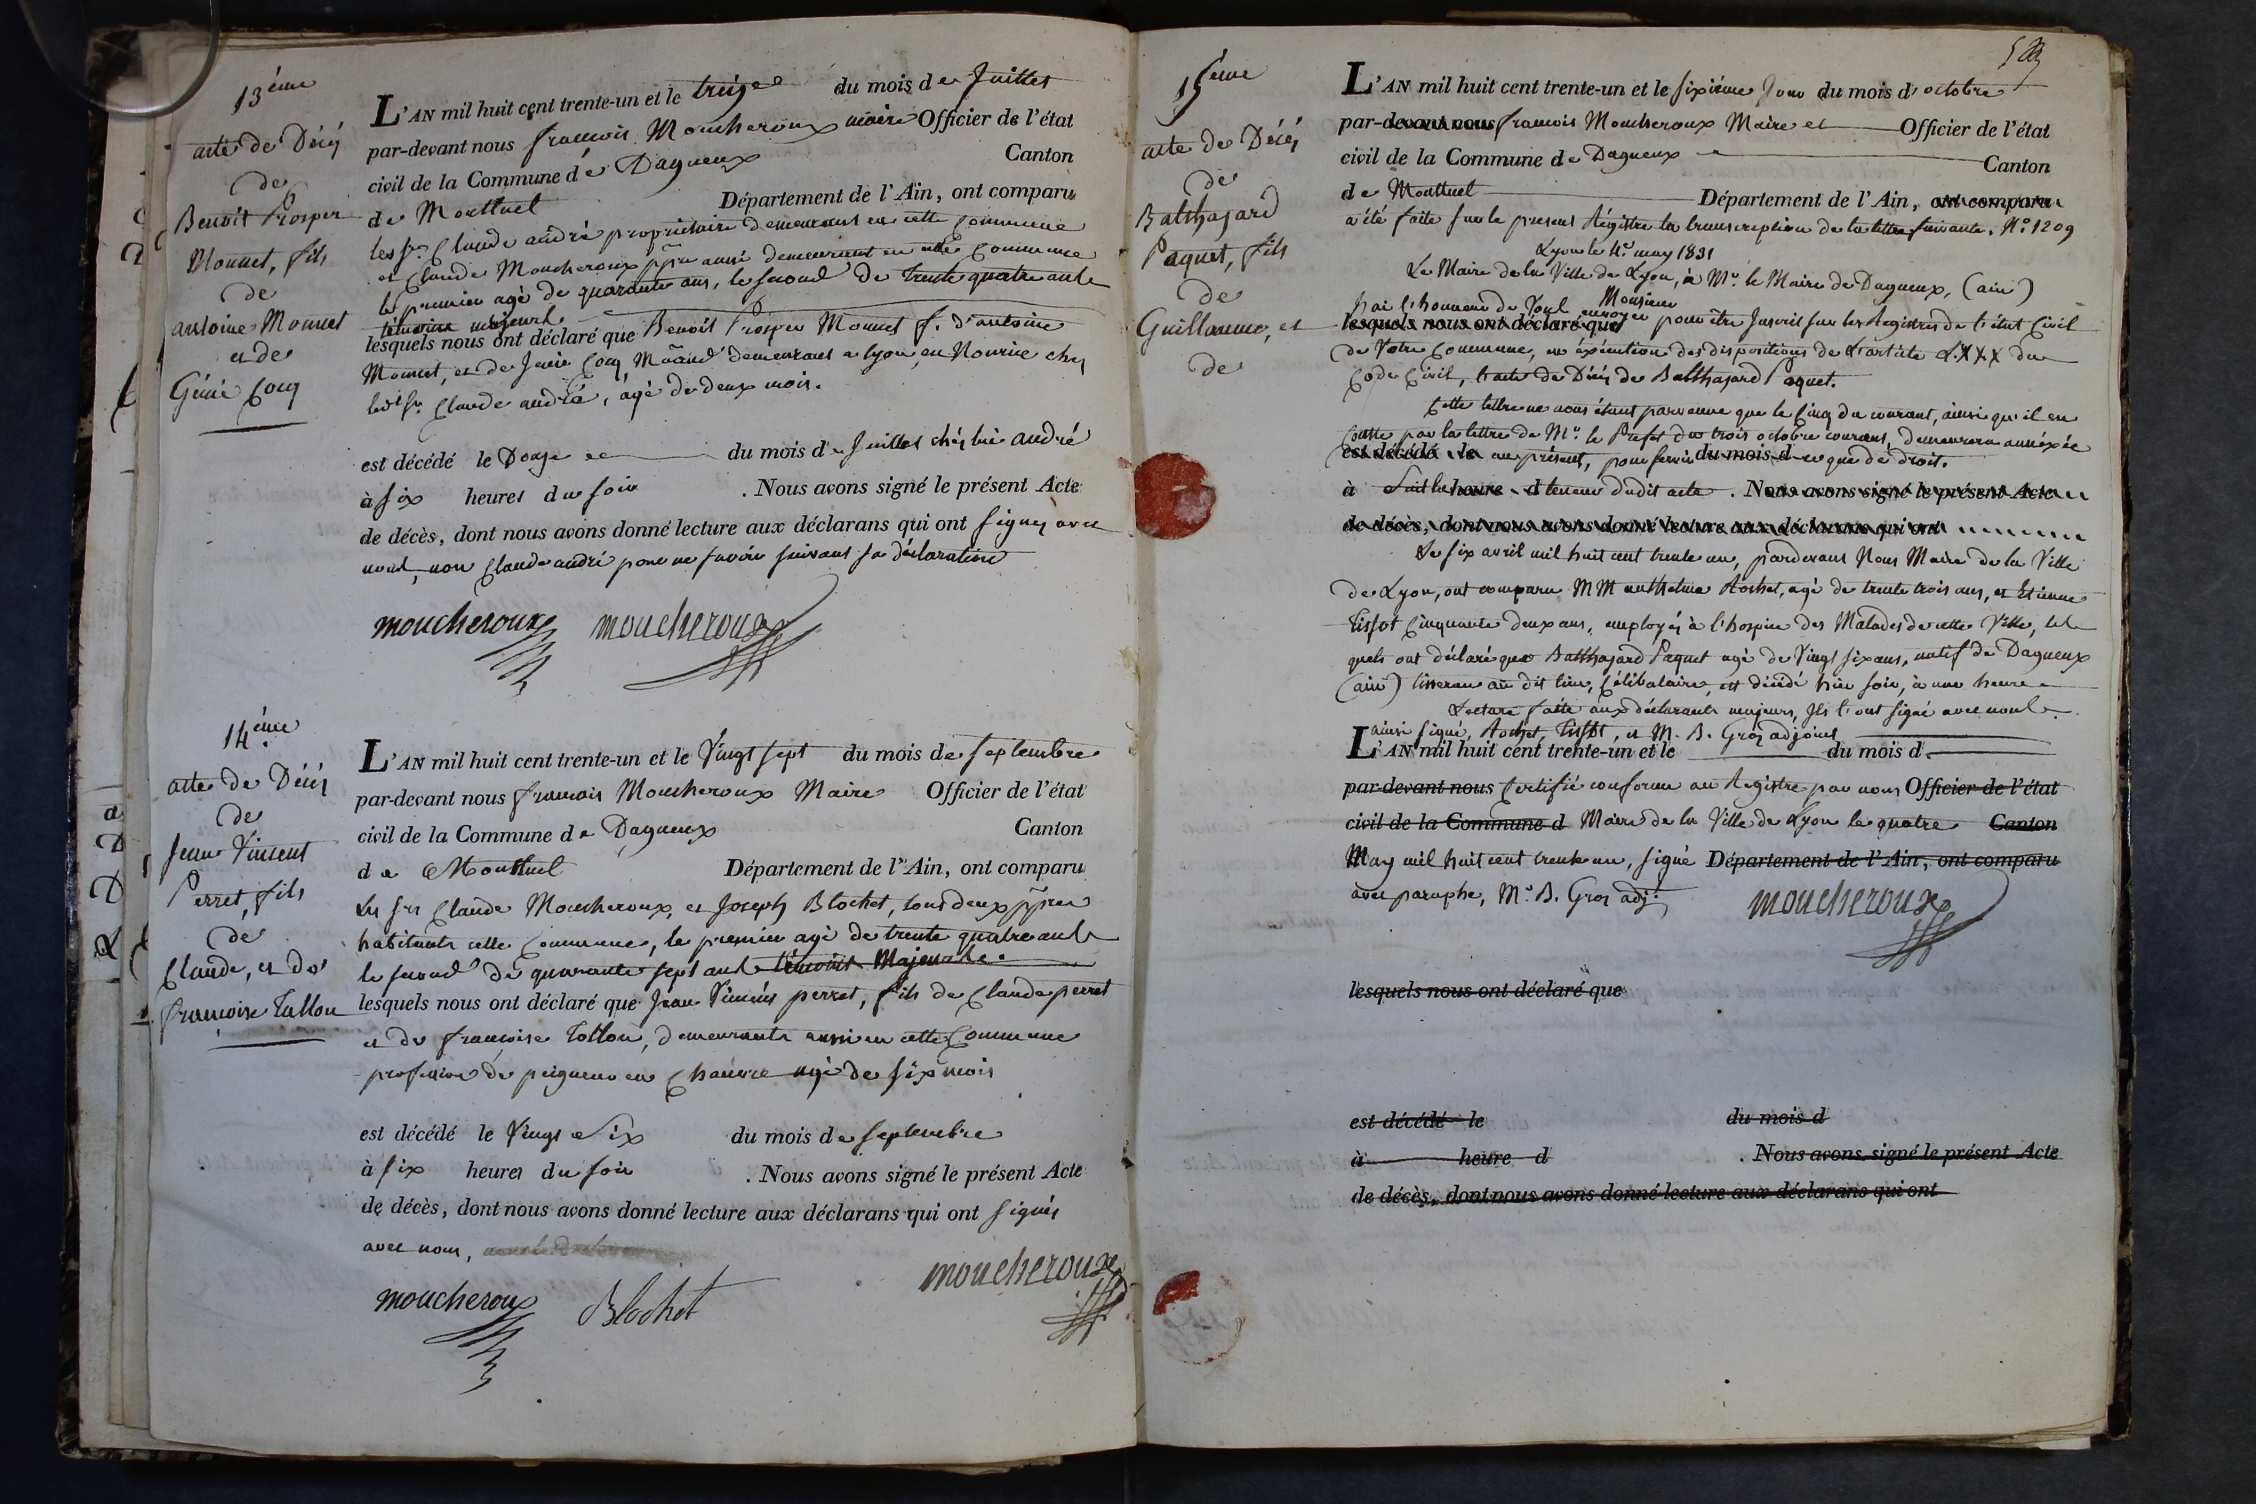 13ème
acte de Décès
de
Benoit Prosper
Monnet, fils
de
antoine Monnet
et de
Génie Cocq
L'AN mil huit cent trente-un et le treize du mois de Juillet
par-devant nous françois Moucheroux maire Officier de l'état
civil de la Commune de Dagneux Canton
de Montluel Département de l'Ain, ont comparu
les Srs Claude andré propriétaire demeurant en cette Commune
et Claude Moucheroux pproe aussi demeurant en cette Commune
le premier agé de quarante ans, le second de trente quatre ans
témoins majeurs
lesquels nous ont déclaré que Benoit Prosper Monnet f. d'antoine
Monnet, et de Cocq demeurant a lyon, en Nourice chez
ledt Sr. Claude andré, agé de deux mois.
est décédé le Douze du mois de Juillet chez lui andré
à six heures du soir . Nous avons signé le présent Acte
de décès, dont nous avons donné lecture aux déclarans qui ont signés avec
nous, non Claude andré pour ne savoir suivant sa déclaration
moucheroux moucheroux
14ème
acte de Décès
de
Jean Vincent
Perret, fils
de
Claude, et de
françoise Tallon
L'AN mil huit cent trente-un et le Vingt sept du mois de septembre
par-devant nous françois Moucheroux Maire Officier de l'état
civil de la Commune de Dagneux Canton
de Montluel Département de l'Ain, ont comparu
Les srs Claude Moucheroux, et Joseph Blochet, tous deux pproes
habitants cette Commune, le premier agé de trente quatre ans
le second de quarante sept ans témoins Majeurs.
lesquels nous ont déclaré que Jean Vincent perret, fils de Claude perret
et de françoise Tallon, demeurants aussi en cette Commune
profession de peigneur en Chanvre agé de six mois
est décédé le Vingt Six du mois de septembre
à six heures du soir . Nous avons signé le présent Acte
de décès, dont nous avons donné lecture aux déclarans qui ont signés
avec nous,
moucheroux Blochet moucheroux
15ème
acte de Décès
de
Balthazard
Paquet, fils
de
Guillaume, et
de
L'AN mil huit cent trente-un et le sixième Jour du mois d'octobre
par-devant nous françois Moucheroux Maire et Officier de l'état
civil de la Commune de Dagneux Canton
de Montluel Département de l'Ain, ont comparu
a été faite sur le present Régistre la transcription de la lettre suivante. No. 1209
Lyon le 4. may 1831
Le Maire de la Ville de Lyon, à Mr. le Maire de Dagneux, (ain)
Monsieur
J'ai l'honneur de Vous envoyer pour être Inscrit sur les Registres de l'état Civil
lesquels nous ont déclaré que
de Votre Commune, en éxécution des dispositions de L'article LXXX du
Code Civil, l'acte de Décès de Balthazard Paquet.
Cette lettre ne nous étant parvenue que le Cinq du courant, ainsi qu'il en
Conste par la lettre de Mr. le Prefet du trois octobre courant, demeurera annéxée
est décédé le au présent, pour servir du mois d ce que de droit.
à Suit la heure d teneur dudit acte . Nous avons signé le présent Acte
de décès, dont nous avons donné lecture aux déclarans qui ont
Le six avril mil huit cent trente un, pardevant Nous Maire de la Ville
de Lyon, ont comparu MM anthelme Rochet, agé de trente trois ans, et Etienne
Tissot Cinquante deux ans, employés à l'hospice des Malades de cette Ville, les
quels ont déclaré que Balthazard Paquet agé de Vingt six ans, natif de Dagneux
(ain) tisserant au dit lieu, Célibataire, est décédé hier soir, à une heure
Lecture faite aux déclarants majeurs, Ils l'ont signé avec nous.
ainsi signé, Rochet, Tissot, et M. B. Gros adjoint
L'AN mil huit cent trente-un et le du mois d
par-devant nous Certifié conforme au Registre par nous Officier de l'état
civil de la Commune d Maire de la Ville de Lyon le quatre Canton
May mil huit cent trente un, signé Département de l'Ain, ont comparu
avec paraphe, Mr. B. Gros adjt. moucheroux
lesquels nous ont déclaré que
est décédé le du mois d
à heure d . Nous avons signé le présent Acte
de décès, dont nous avons donné lecture aux déclarans qui ont